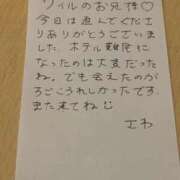 ワイルのお兄様♡
今日は遊んでくださ
りありがとうございまし
た。ホテル難民に
なったのは大変だった
ね。でも会えたのがな
によりうれしかったです。
また来てね☺
さわ